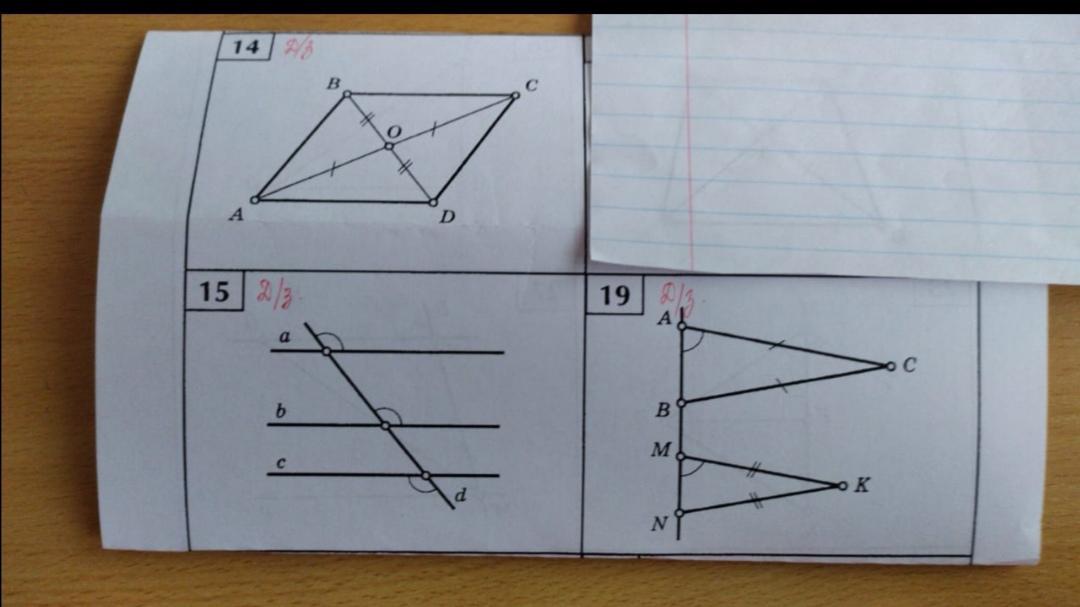 14 Д/з
B C
O
A D
15 Д/з.
a
b
c
d
19 Д/з.
A
C
B
M
K
N